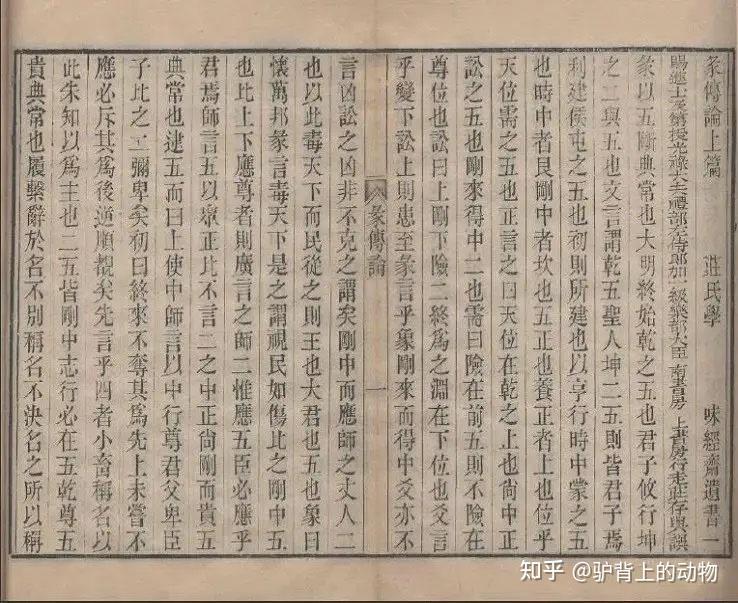 彖傳論上篇 莊氏學 味經齋遺書一
賜進士及第授光祿大夫禮部左侍郎加一級樂部大臣 南書房 上書房行走莊存與譔
彖以五斷典常也大明終始乾之五也君子攸行坤
之二與五也文言謂乾五聖人坤二五則皆君子焉
利建侯屯之五也初則所建也以亨行時中蒙之五
也時中者艮剛中者坎也五正也養正者上也位乎
天位需之五也正言之曰天位在乾之上也尚中正
訟之五也剛來得中二也需曰險在前五則不險在
尊位也訟曰上剛下險二終爲之淵在下位也爻言
乎變下訟上則患至彖言乎象剛來而得中爻亦不
彖傳論 一
言凶訟之凶非不克之謂矣剛中而應師之丈人二
也以此毒天下而民從之則王也大君也五也象曰
懷萬邦彖言毒天下是之謂視民如傷比之剛中五
也比上下應尊者則廣言之師二惟應五臣必應乎
君焉師言五以衆正比不言二之中正尚剛而貴五
典常也逮五而曰上使中師言以中行尊君父卑臣
子比之二彌卑矣初曰終來不奪其爲先上未嘗不
應必斥其爲後道順覩矣先言乎四者小畜稱名以
此朱知以爲主也二五皆剛中志行必在五乾尊五
貴典常也履繫辭於名不別稱名不決名之所以稱
知乎 @驴背上的动物